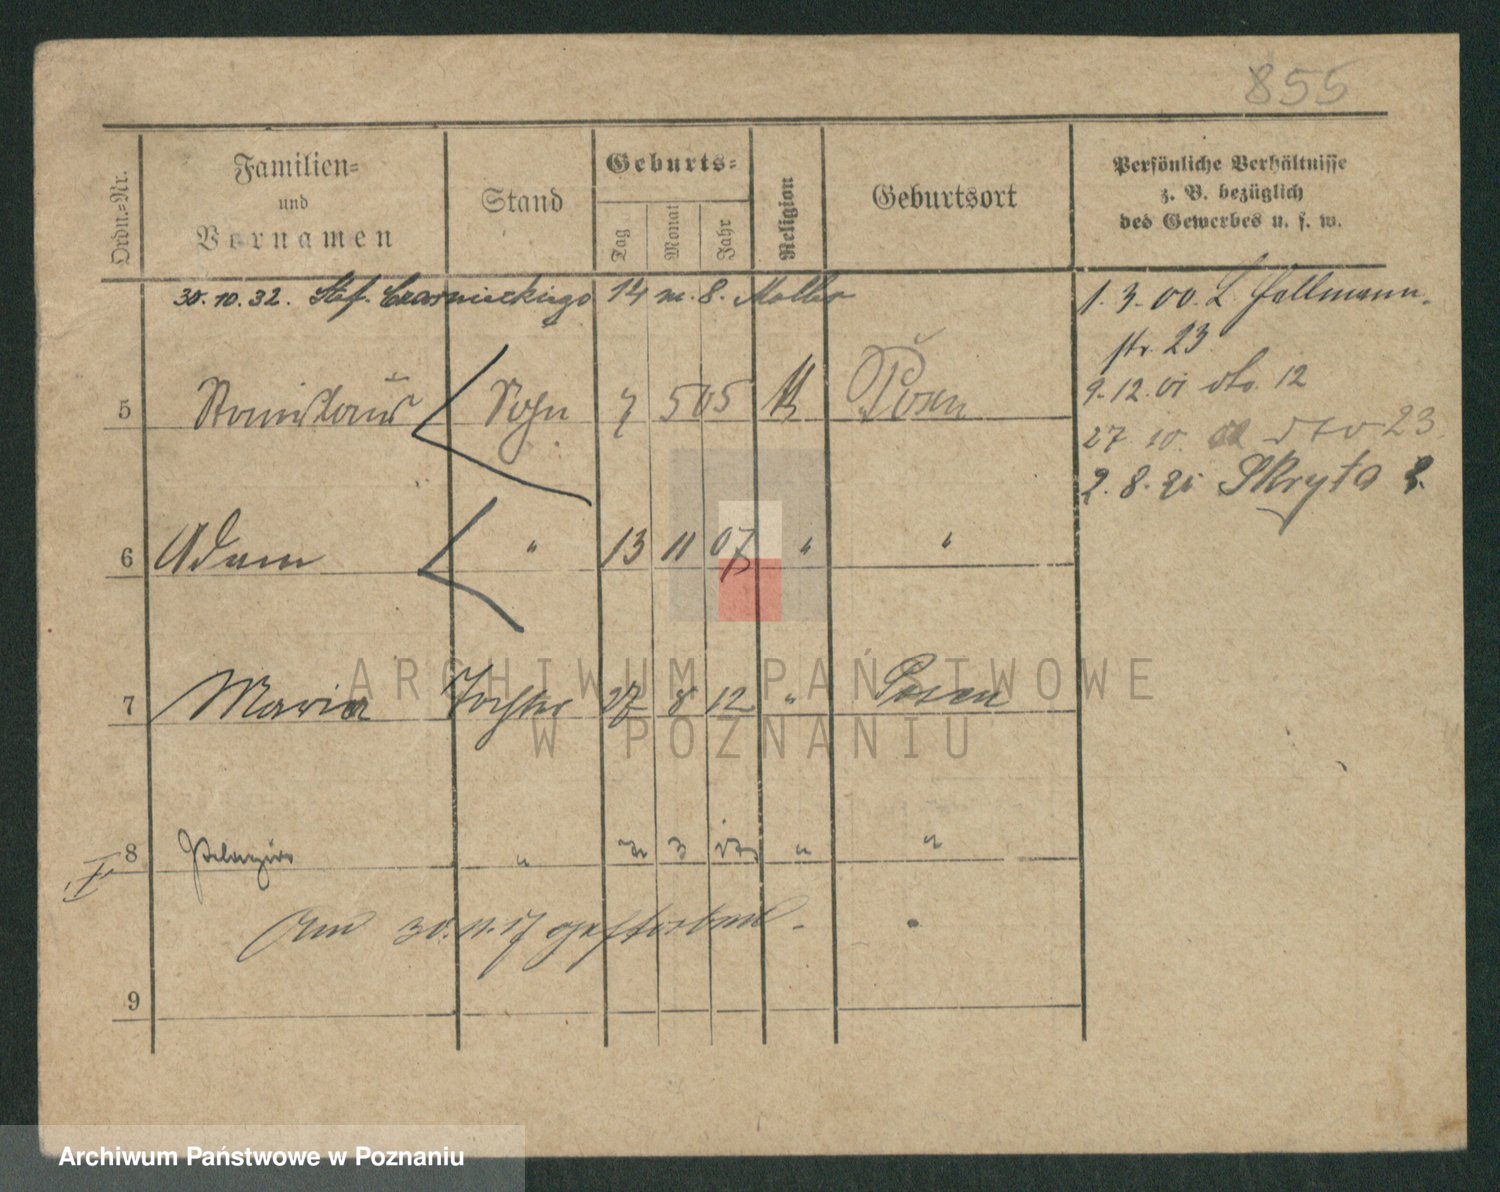 855
Ordn.-Nr.
Familien-
und
Vornamen
Stand
Geburts-
Tag
Monat
Jahr
Religion
Geburtsort
Persönliche Verhältnisse
z. B. bezüglich
des Gewerbes u. s. w.
30.10.32. Stef. Czarnieckiego 14 m. 8.
1.3.00. Follmann-
str. 23
9.12.01 dto. 12
27.10. 02 dto 23
2.8.21 Skryta 2.
5 Stanislaus Sohn 7 5 05 k Posen
6 Adam " 13 11 07 " "
7 Maria Tochter 27 8 12 " Posen
8 Pelagia " 3 " "
Am 30.11.17 gestorben.
9
ARCHIWUM PAŃSTWOWE
W POZNANIU
Archiwum Państwowe w Poznaniu